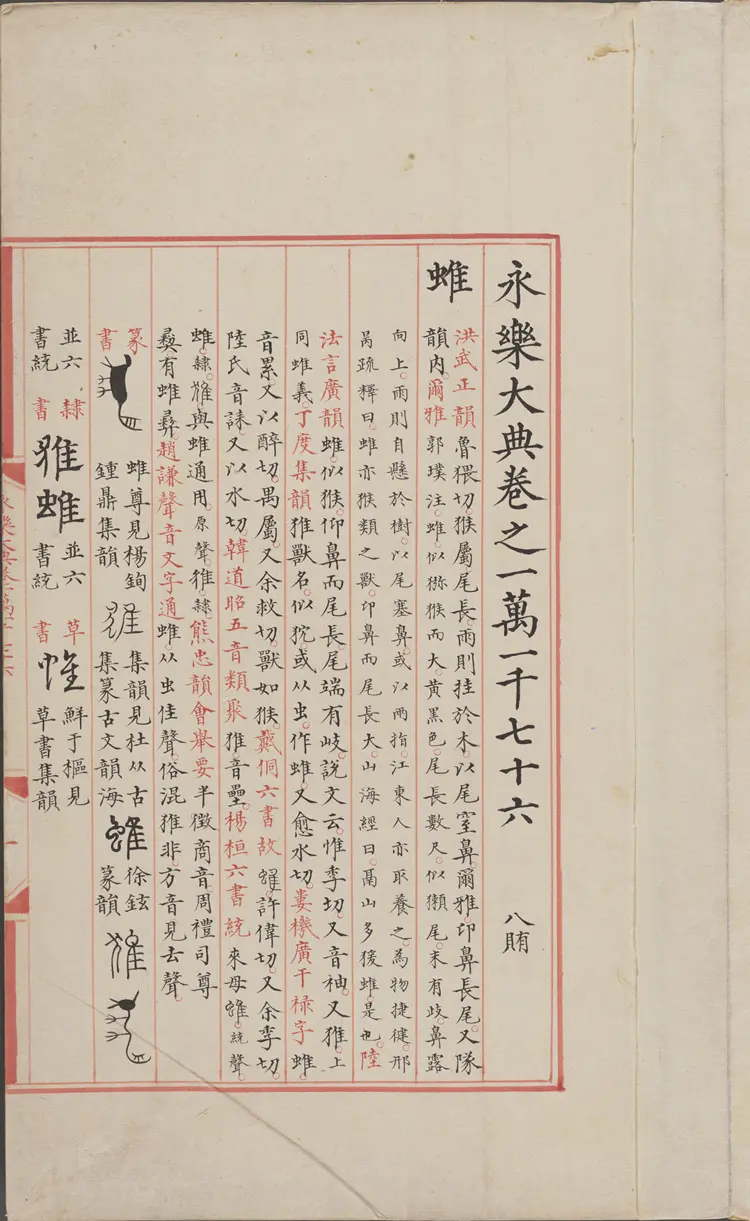 永樂大典卷之一萬一千七十六 八賄
蜼
洪武正韻魯猥切。猴屬尾長。雨則挂於木。以尾窒鼻。爾雅卬鼻長尾。又隊
韻内。爾雅郭璞注。蜼似獼猴而大。黃黑色。尾長數尺。似獺尾。末有歧。鼻露
向上。雨則自懸於樹。以尾塞鼻。或以兩指。江東人亦取養之。為物捷健。邢
昺疏釋曰。蜼亦猴類之獸。卬鼻而尾長大。山海經曰。鬲山多猨蜼是也。陸
法言廣韻蜼似猴。仰鼻而尾長。尾端有歧。說文云。惟季切。又音袖。又猚。上
同蜼義。丁度集韻猚獸名。似狖。或从虫。作蜼。又愈水切。婁機廣干祿字蜼
音累。又以醉切。禺屬。又余救切。獸如猴。戴侗六書故蜼。許偉切。又余季切。
陸氏音誄。又以水切。韓道昭五音類聚猚音壘。楊桓六書統來母蜼。統聲。
蜼。隸。猚與蜼通用。原聲。猚。隸。熊忠韻會舉要半徵商音。周禮司尊
彝有蜼彝。趙謙聲音文字通蜼。从虫隹聲。俗混猚非。方音見去聲。
篆書 蜼尊見楊鉤鍾鼎集韻 集韻見杜从古集篆古文韻海 蜼 徐鉉篆韻
並六書統 隸書 猚 蜼 並六書統 草書 蜼 鮮于樞見草書集韻